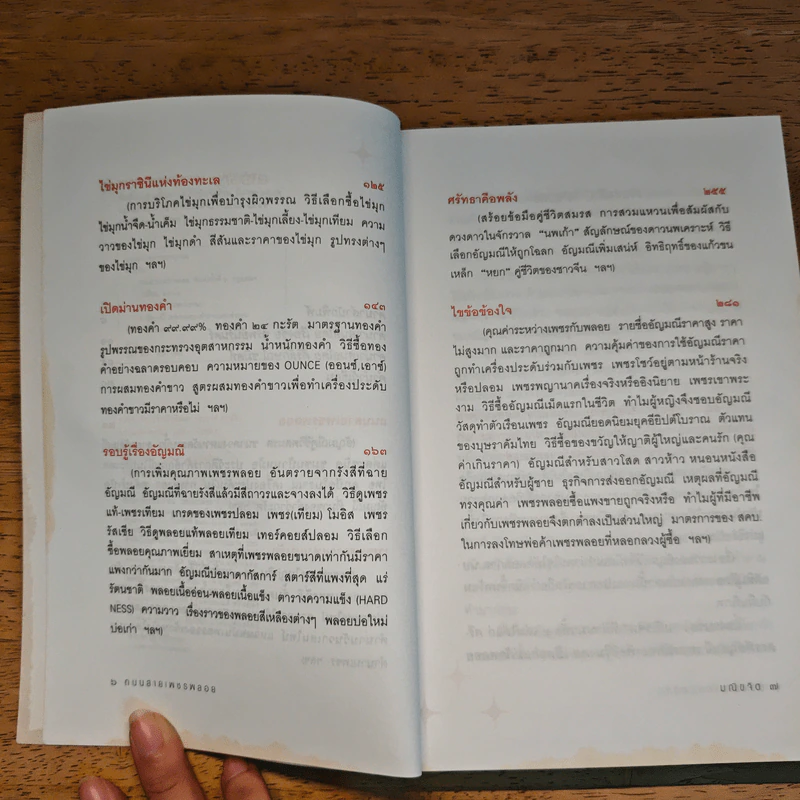 ไข่มุกราชินีแห่งท้องทะเล ๑๒๕
(การบริโภคไข่มุกเพื่อบำรุงผิวพรรณ วิธีเลือกซื้อไข่มุก
ไข่มุกน้ำจืด-น้ำเค็ม ไข่มุกธรรมชาติ-ไข่มุกเลี้ยง-ไข่มุกเทียม ความ
วาวของไข่มุก ไข่มุกดำ สีสันและราคาของไข่มุก รูปทรงต่างๆ
ของไข่มุก ฯลฯ)
เปิดม่านทองคำ ๑๔๓
(ทองคำ ๙๙.๙๙% ทองคำ ๒๔ กะรัต มาตรฐานทองคำ
รูปพรรณของกระทรวงอุตสาหกรรม น้ำหนักทองคำ วิธีซื้อทอง
คำอย่างฉลาดรอบคอบ ความหมายของ OUNCE (ออนซ์,เอาซ์)
การผสมทองคำขาว สูตรผสมทองคำขาวเพื่อทำเครื่องประดับ
ทองคำขาวมีราคาหรือไม่ ฯลฯ)
รอบรู้เรื่องอัญมณี ๑๖๓
(การเพิ่มคุณภาพเพชรพลอย อันตรายจากรังสีที่ฉาย
อัญมณี อัญมณีที่ฉายรังสีแล้วมีสีถาวรและจางลงได้ วิธีดูเพชร
แท้-เพชรเทียม เกรดของเพชรปลอม เพชร(เทียม) โมอิส เพชร
รัสเซีย วิธีดูพลอยแท้พลอยเทียม เทอร์คอยส์ปลอม วิธีเลือก
ซื้อพลอยคุณภาพเยี่ยม สาเหตุที่เพชรพลอยขนาดเท่ากันมีราคา
แพงกว่ากันมาก อัญมณีบ่อมาดากัสการ์ สตาร์สีที่แพงที่สุด แร่
รัตนชาติ พลอยเนื้ออ่อน-พลอยเนื้อแข็ง ตารางความแข็ง (HARD
NESS) ความวาว เรื่องราวของพลอยสีเหลืองต่างๆ พลอยบ่อใหม่
บ่อเก่า ฯลฯ)
๖ ถนนสายเพชรพลอย
ศรัทธาคือพลัง ๒๕๕
(สร้อยข้อมือคู่ชีวิตสมรส การสวมแหวนเพื่อสัมผัสกับ
ดวงดาวในจักรวาล "นพเก้า" สัญลักษณ์ของดาวนพเคราะห์ วิธี
เลือกอัญมณีให้ถูกโฉลก อัญมณีเพิ่มเสน่ห์ อิทธิฤทธิ์ของแก้วขน
เหล็ก "หยก" คู่ชีวิตของชาวจีน ฯลฯ)
ไขข้อข้องใจ ๒๘๑
(คุณค่าระหว่างเพชรกับพลอย รายชื่ออัญมณีราคาสูง ราคา
ไม่สูงมาก และราคาถูกมาก ความคุ้มค่าของการใช้อัญมณีราคา
ถูกทำเครื่องประดับร่วมกับเพชร เพชรโชว์อยู่ตามหน้าร้านจริง
หรือปลอม เพชรพญานาคเรื่องจริงหรืออิงนิยาย เพชรเขาพระ
งาม วิธีซื้ออัญมณีเม็ดแรกในชีวิต ทำไมผู้หญิงจึงชอบอัญมณี
วัสดุทำตัวเรือนเพชร อัญมณียอดนิยมยุคอียิปต์โบราณ ตัวแทน
ของบุษราคัมไทย วิธีซื้อของขวัญให้ญาติผู้ใหญ่และคนรัก (คุณ
ค่าเกินราคา) อัญมณีสำหรับสาวโสด สาวห้าว หนอนหนังสือ
อัญมณีสำหรับผู้ชาย ธุรกิจการส่งออกอัญมณี เหตุผลที่อัญมณี
ทรงคุณค่า เพชรพลอยซื้อแพงขายถูกจริงหรือ ทำไมผู้ที่มีอาชีพ
เกี่ยวกับเพชรพลอยจึงตกต่ำลงเป็นส่วนใหญ่ มาตรการของ สคบ.
ในการลงโทษพ่อค้าเพชรพลอยที่หลอกลวงผู้ซื้อ ฯลฯ)
มณีจิต ๗